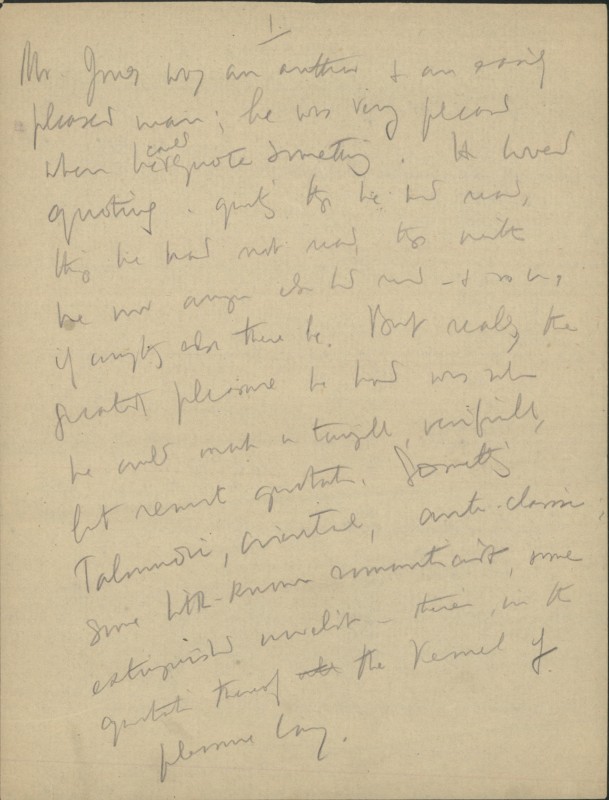 1.
Mr. Jones was an author & an easily
pleased man; he was very pleased
when he could quote something. He loved
quoting. quoting things he had read,
things he had not read, things neither
he nor anyone else had read — & so on,
if anything else there be. But really the
greatest pleasure he had was when
he could make a tangible, verifiable,
but remote quotation. Something
Talmudic, oriental, ante-classic;
some little-known romanticist, some
extinguished novelist — therein, in the
quotation thereof the kernel of
pleasure lay.